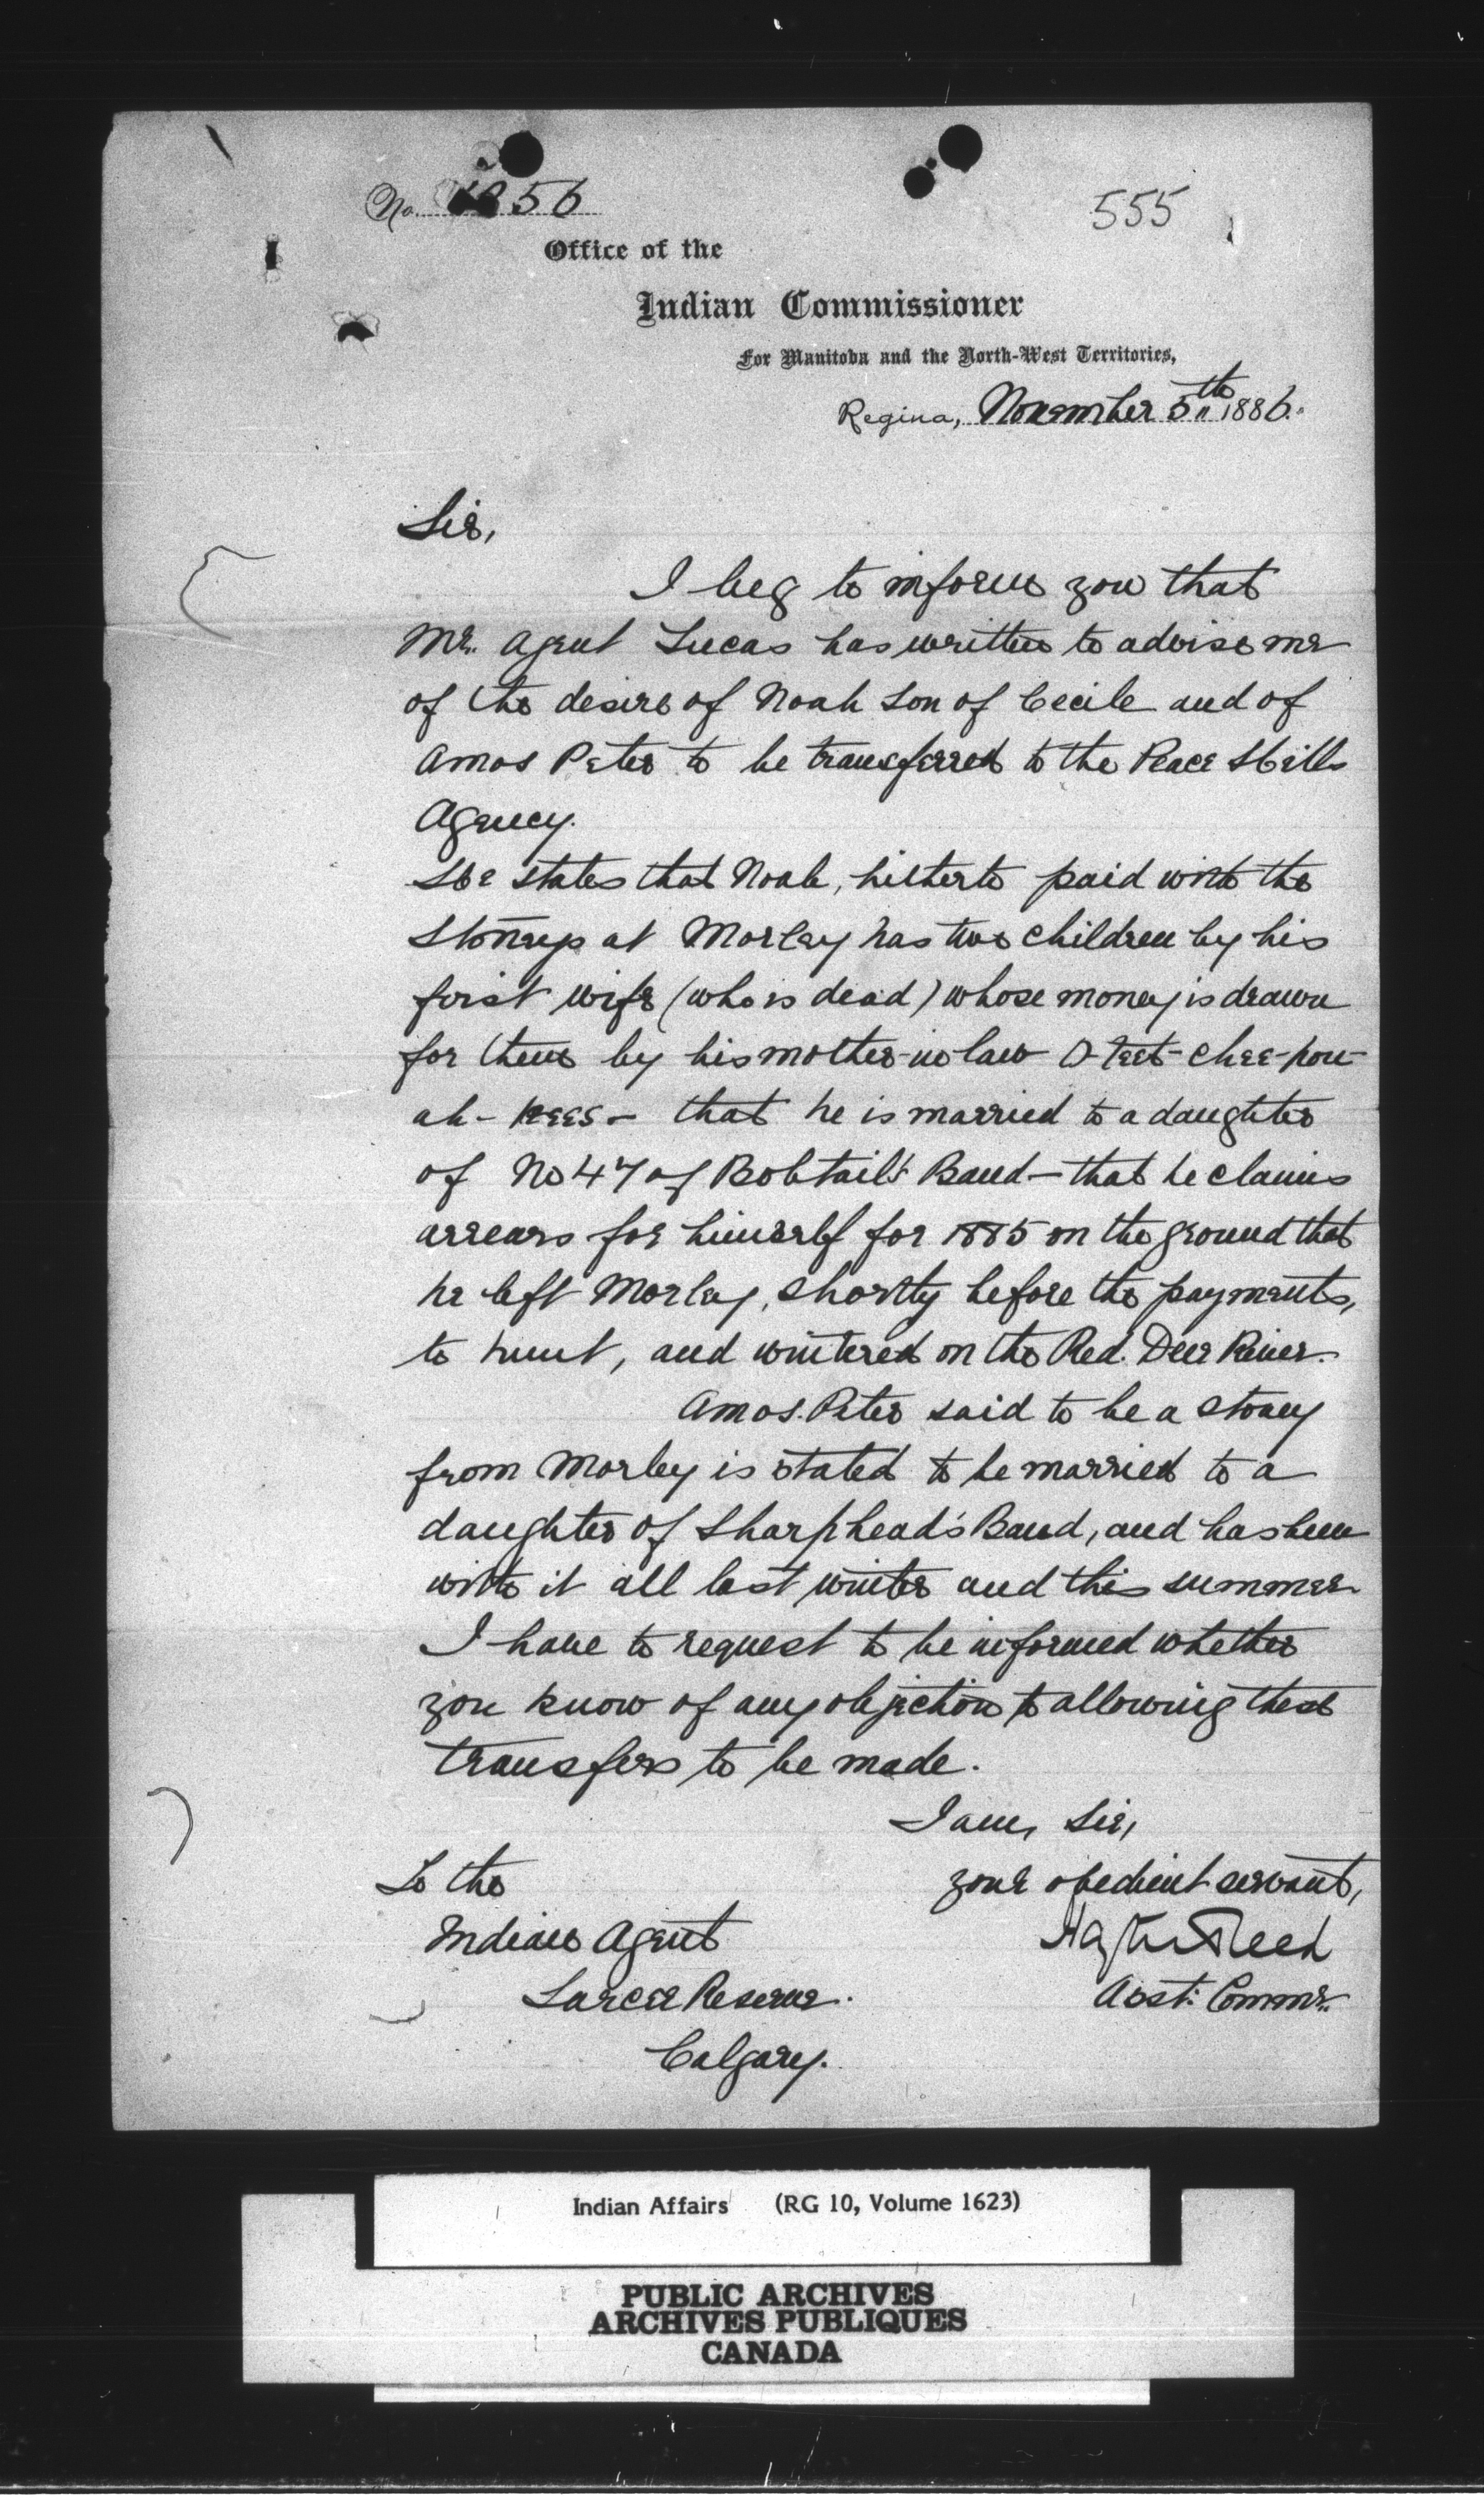 No. 56
555
Office of the
Indian Commissioner
For Manitoba and the North-West Territories,
Regina, November 5th 1886.
Sir,
I beg to inform you that
Mr. Agent Lucas has written to advise me
of the desire of Noah son of Cecile and of
Amos Peter to be transferred to the Peace Hills
Agency.
He states that Noah, hitherto paid with the
Stoneys at Morley has two children by his
first wife (who is dead) whose money is drawn
for them by his mother-in-law O-teet-chee-pou-
ah-kees- that he is married to a daughter
of No 47 of Bobtail's Band - that he claims
arrears for himself for 1885 on the ground that
he left Morley, shortly before the payments,
to hunt, and wintered on the Red Deer River.
Amos Peter said to be a Stoney
from Morley is stated to be married to a
daughter of Sharphead's Band, and has been
with it all last winter and this summer
I have to request to be informed whether
you know of any objection to allowing these
transfers to be made.
I am, Sir,
your obedient servant,
Hayter Reed
Asst. Commr.
To the
Indian Agent
Sarcee Reserve.
Calgary.
Indian Affairs (RG 10, Volume 1623)
PUBLIC ARCHIVES
ARCHIVES PUBLIQUES
CANADA